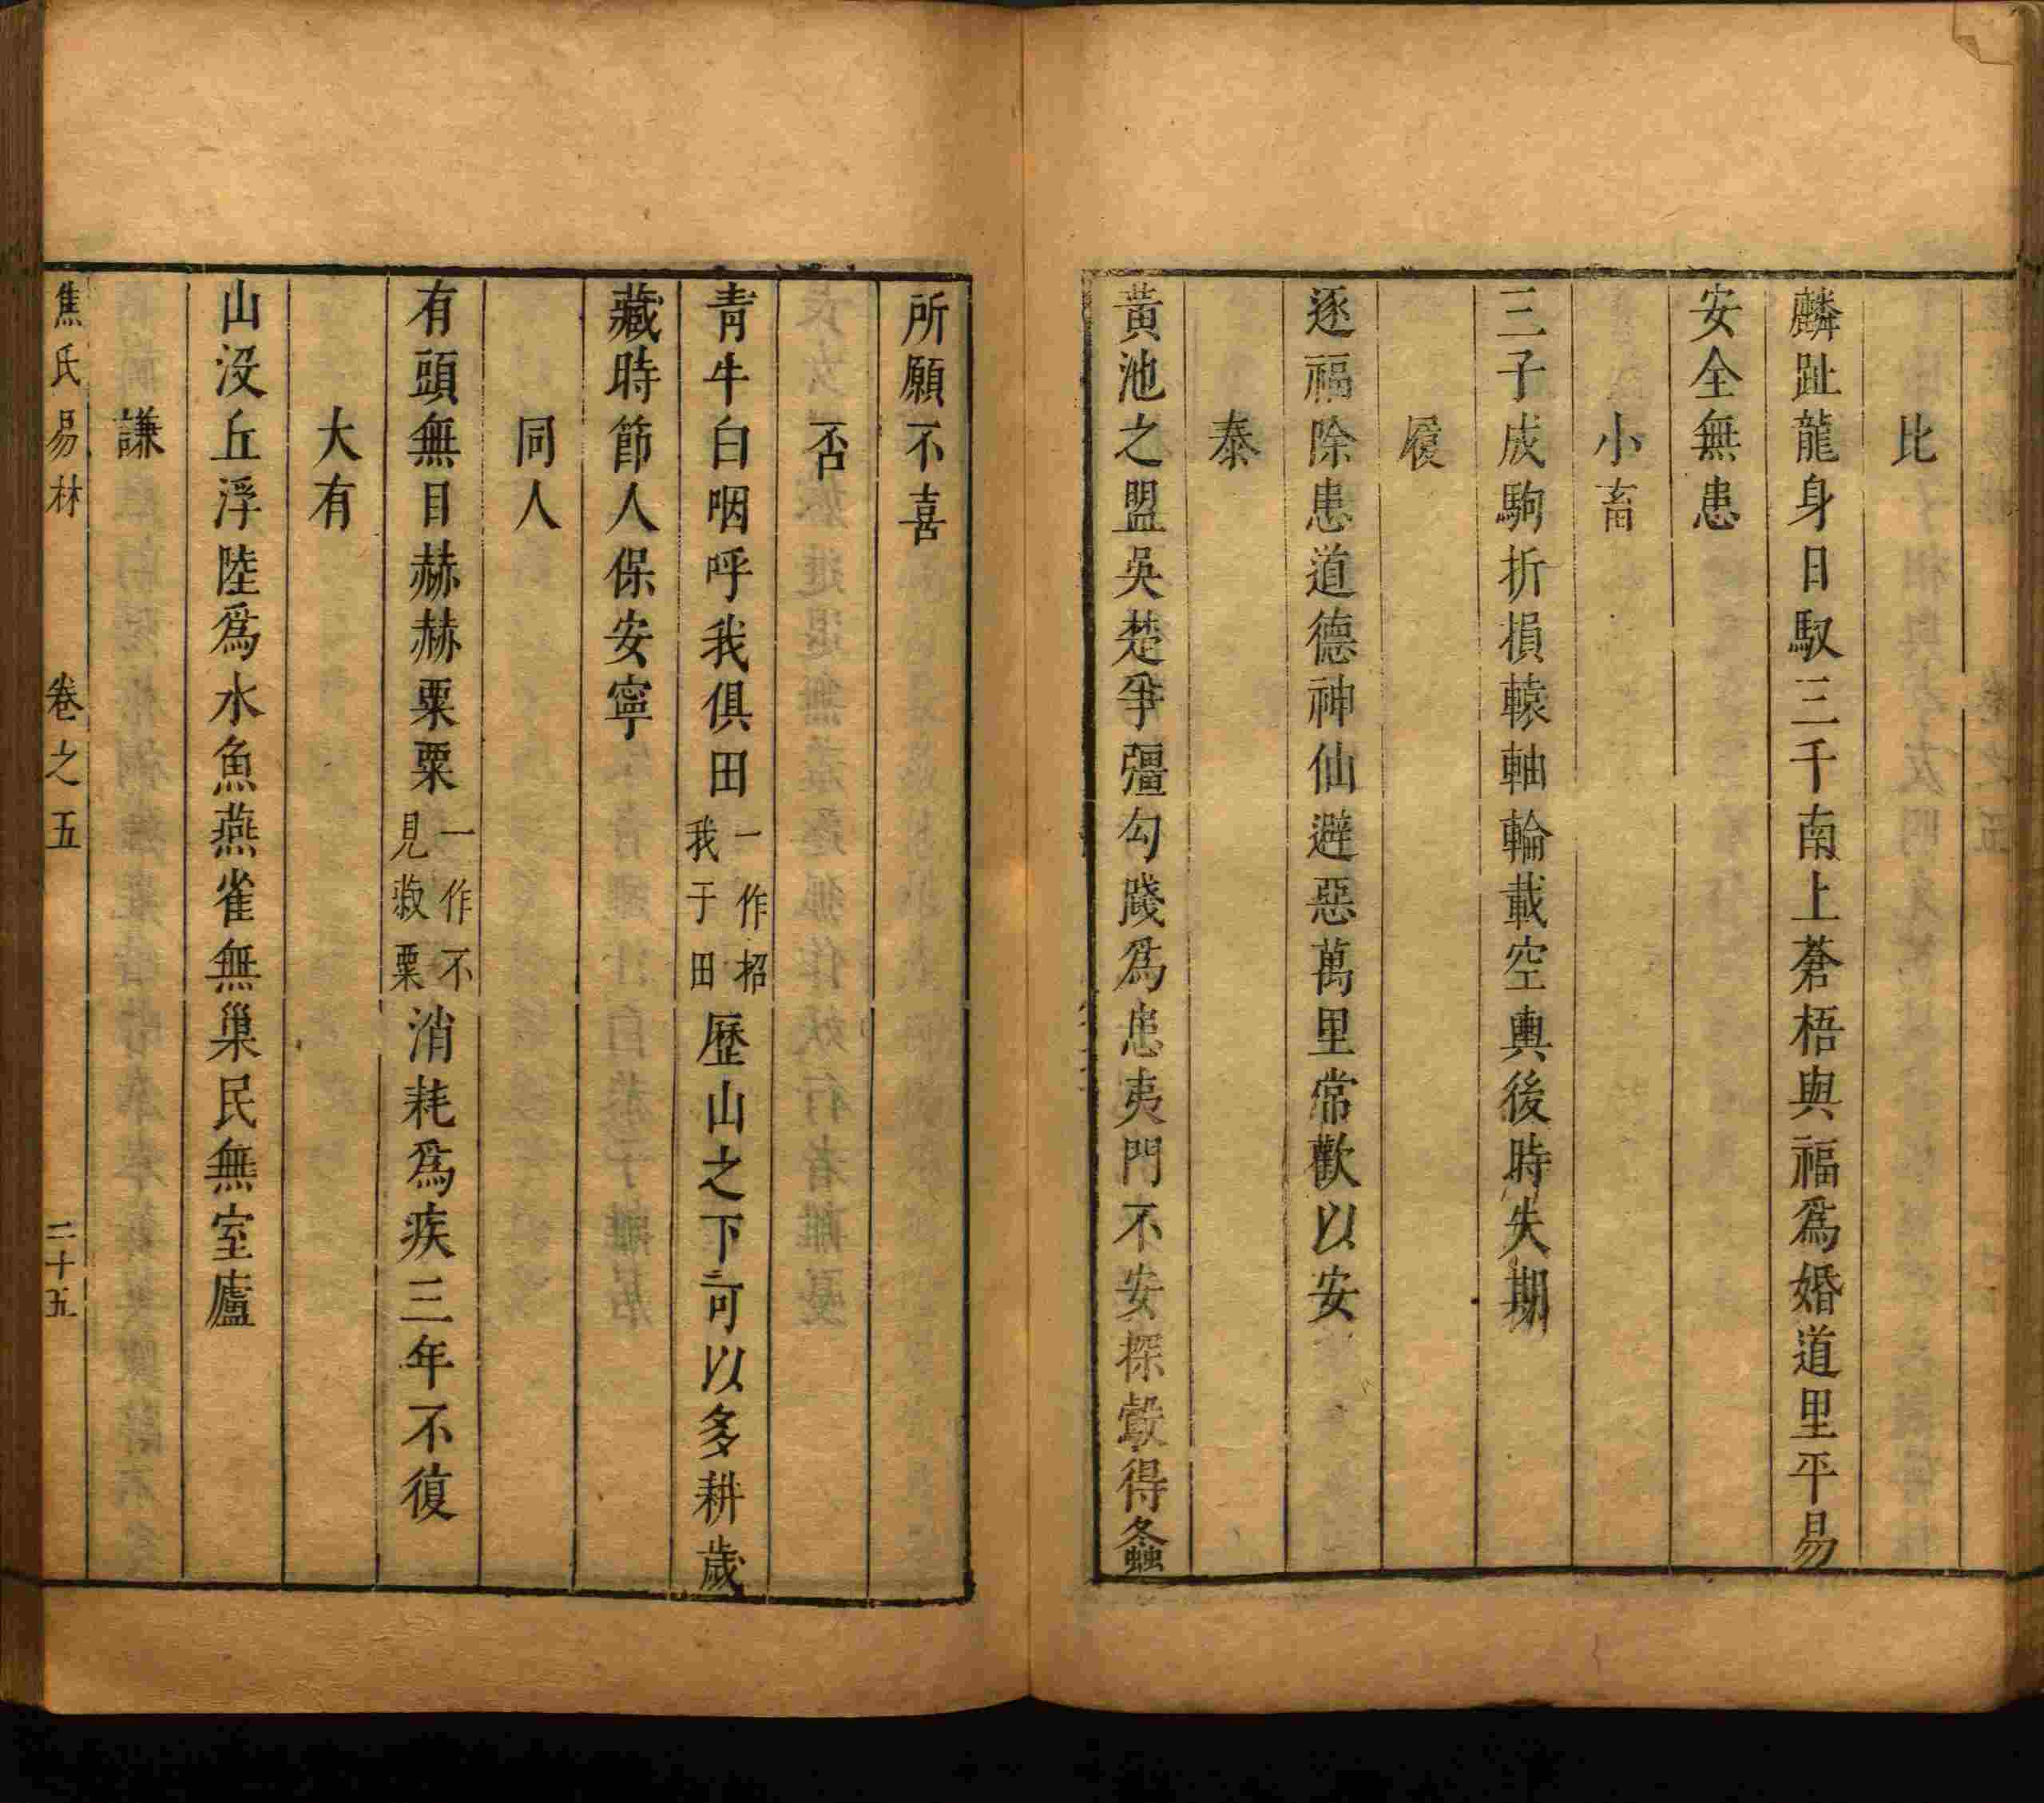 比
麟趾龍身日馭三千南上蒼梧與福爲婚道里平易
安全無患
小畜
三子成駒折損轅軸輪載空輿後時失期
履
逐福除患道德神仙避惡萬里常歡以安
泰
黃池之盟吳楚爭彊勾踐爲患夷門不安探鷇得螽
所願不喜
否
青牛白咽呼我俱田一作招我于田歷山之下可以多耕歲
藏時節人保安寧
同人
有頭無目赫赫粟粟一作不見菽粟消耗爲疾三年不復
大有
山没丘浮陸爲水魚燕雀無巢民無室廬
謙
焦氏易林 卷之五 二十五